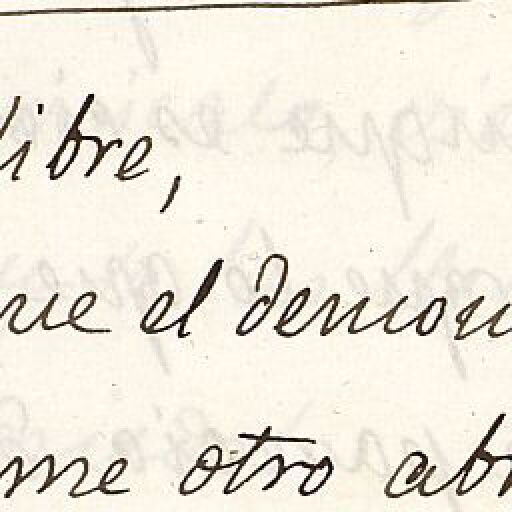 libre,
ue el demon
me otro abr